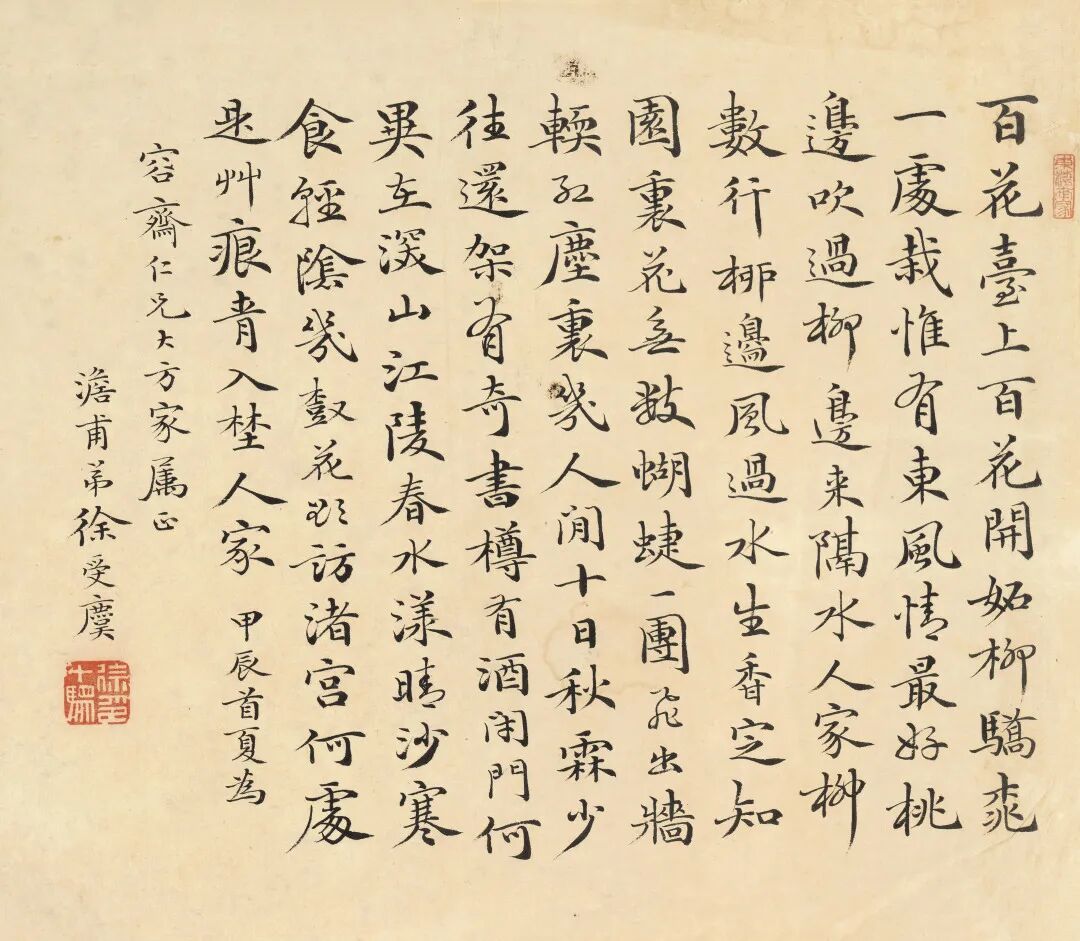 百花臺上百花開妬柳驕桃
一處栽惟有東風情最好桃
邊吹過柳邊来隔水人家柳
數行柳邊風過水生香定知
園裏花無数蝴蜨一團飛出牆
輭紅塵裏幾人閒十日秋霖少
往還架有奇書樽有酒閉門何
異在深山江陵春水漾晴沙寒
食輕陰幾樹花欲訪渚宮何處
是艸痕青入埜人家 甲辰首夏為
容齋仁兄大方家属正
澹甫弟徐受麌